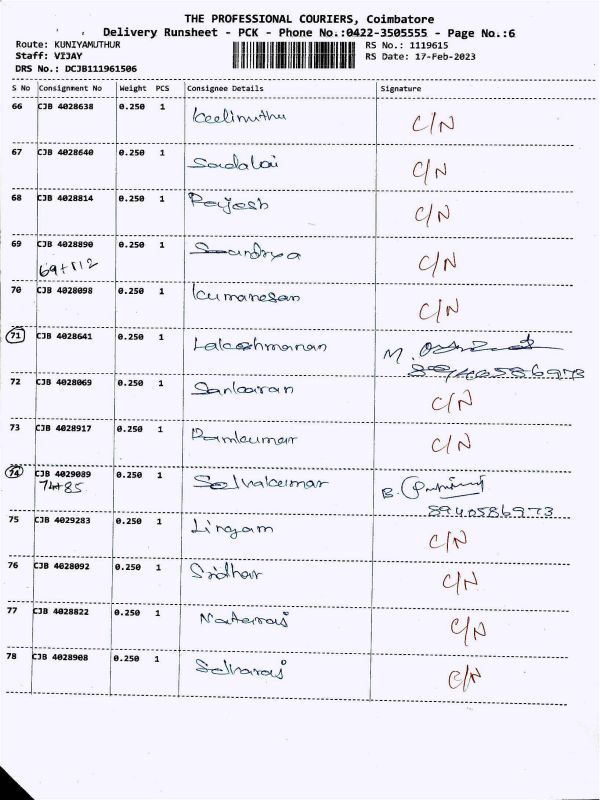 THE PROFESSIONAL COURIERS, Coimbatore
Delivery Runsheet - PCK - Phone No.:0422-3505555 - Page No.:6
Route: KUNIYAMUTHUR RS No.: 1119615
Staff: VIJAY RS Date: 17-Feb-2023
DRS No.: DCJB111961506
S No Consignment No Weight PCS Consignee Details Signature
66 CJB 4028638 0.250 1 Kalimuthu C/N
67 CJB 4028640 0.250 1 Sadalai C/N
68 CJB 4028814 0.250 1 Rajesh C/N
69 CJB 4028890 0.250 1 Sandya C/N
69+112
70 CJB 4028098 0.250 1 Kumaresan C/N
71 CJB 4028641 0.250 1 Lakeshmanan M.
72 CJB 4028069 0.250 1 Sankaran C/N
73 CJB 4028917 0.250 1 Ramkumar C/N
74 CJB 4029089 0.250 1 Selvakumar B.
74+85 8940586973
75 CJB 4029283 0.250 1 Lingam C/N
76 CJB 4028092 0.250 1 Sridhar C/N
77 CJB 4028822 0.250 1 Nataraj C/N
78 CJB 4028908 0.250 1 Selvaraj C/N